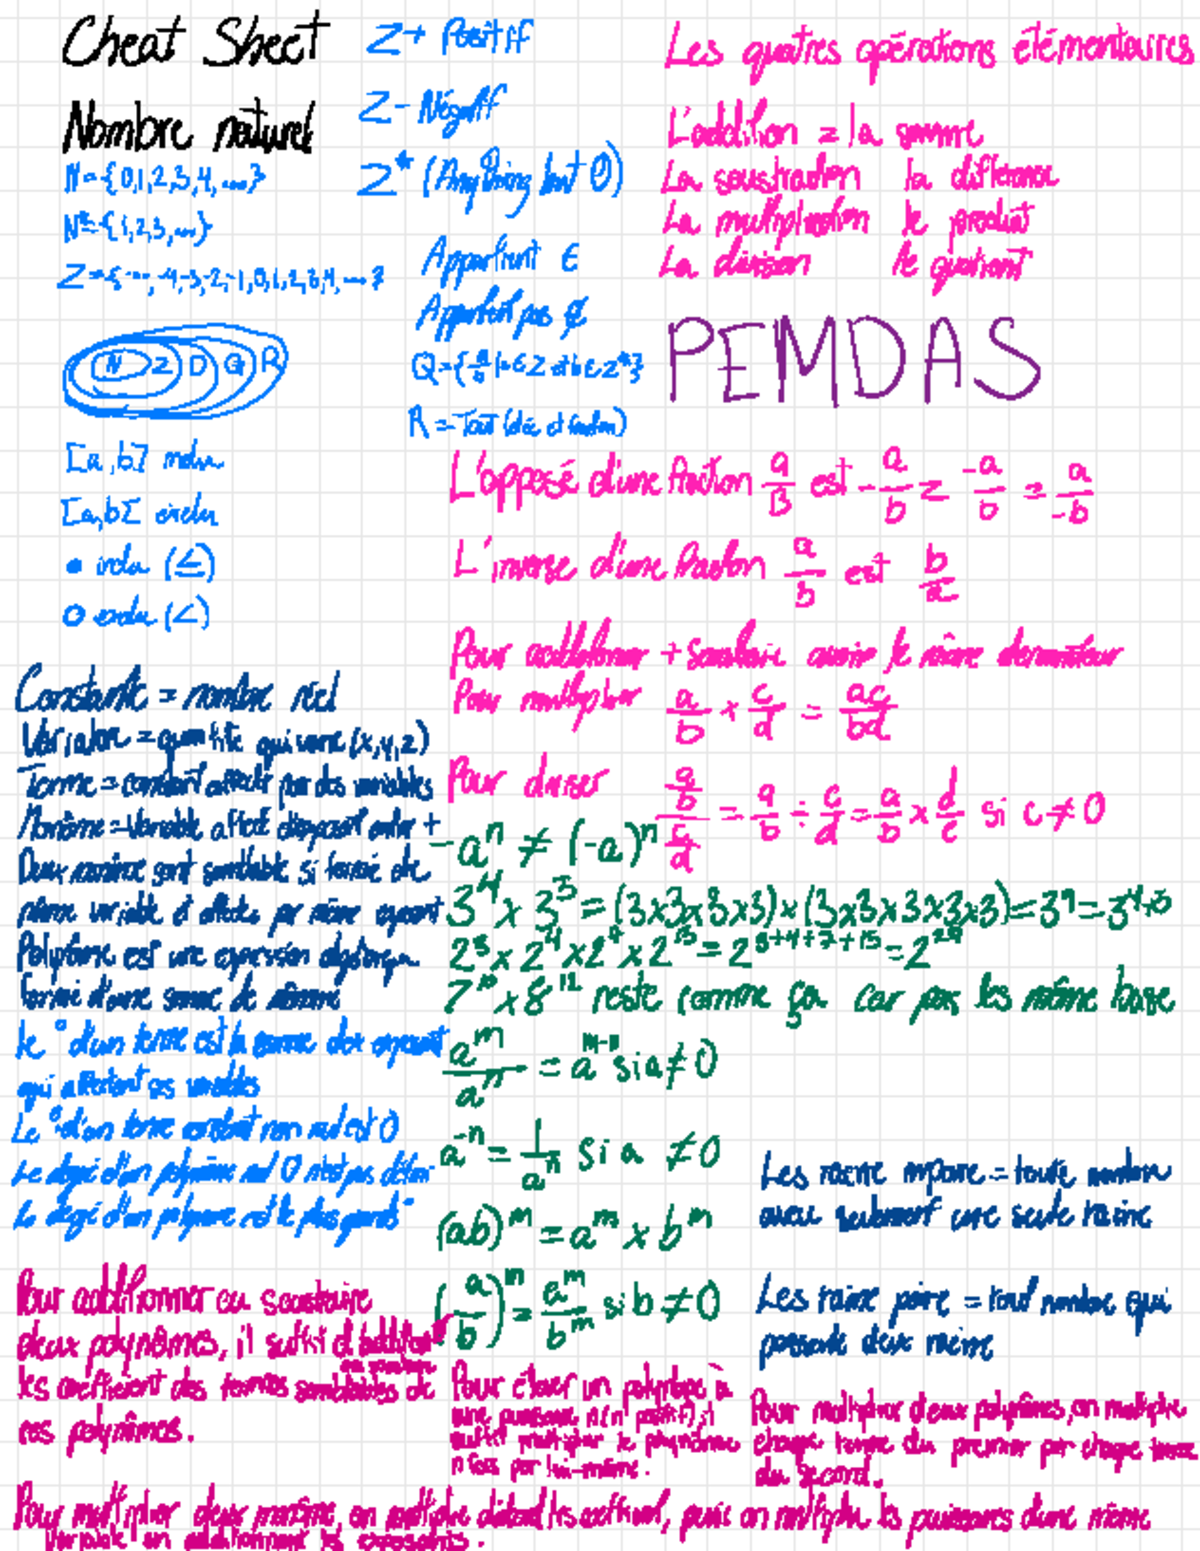 Cheat Sheet
Nombre naturel
N = {0,1,2,3,4,...}
N*={1,2,3,...}
Z={...,-4,-3,-2,-1,0,1,2,3,4,...}
Z+ Positif
Z- Négatif
Z* (Anything but 0)
Appartient ∈
Appartient pas ∉
Q={a/b | a∈Z et b∈Z*}
R = Tout
N Z D Q R
[a,b] inclu
[a,b[ exclu
• inclu (≤)
o exclu (<)
Les quatres opérations élémentaires
L'addition = la somme
La soustraction la différence
La multiplication le produit
La division le quotient
PEMDAS
L'opposé d'une fraction a/B est -a/b = -a/b = a/-b
L'inverse d'une fraction a/b est b/a
Pour additionner + soustraire avoir le même dénominateur
Pour multiplier a/b × c/d = ac/bd
Pour diviser (a/b)/(c/d) = a/b ÷ c/d = a/b × d/c si c≠0
Constante = nombre réel
Variable = quantité qui varie (x,y,z)
Terme = constant affecté par des variables
Monôme = Variable affecté d'exposant entier +
Deux monôme sont semblable si formé de
même variable et affecté par même exposant
Polynôme est une expression algébrique
formé d'une somme de monôme
Le ° d'un terme est la somme des exposant
qui affectent ses variables
Le ° d'un terme constant non nul est 0
Le degré d'un polynôme nul 0 n'est pas défini
Le degré d'un polynôme est le plus grand °
-aⁿ ≠ (-a)ⁿ
3⁴ × 3⁵ = (3×3×3×3)×(3×3×3×3×3)=3⁹=3⁴⁺⁵
2³×2⁴×2⁷×2¹⁵=2³⁺⁴⁺⁷⁺¹⁵=2²⁹
7¹⁰×8¹² reste comme ça car pas les même base
aᵐ/aⁿ = aᵐ⁻ⁿ si a≠0
a⁻ⁿ = 1/aⁿ si a ≠0
(ab)ᵐ = aᵐ × bᵐ
(a/b)ᵐ = aᵐ/bᵐ si b≠0
Les racine impaire = toute nombre
avec seulement une seule racine
Les racine paire = tout nombre qui
possède deux racine
Pour additionner ou soustraire
deux polynômes, il suffit d'additionner
ou soustraire
les coefficient des termes semblables de
ces polynômes.
Pour élever un polynôme à
une puissance n (n positif), il
suffit multiplier le polynôme
n fois par lui-même.
Pour multiplier deux polynômes, on multiplie
chaque terme du premier par chaque terme
du second.
Pour multiplier deux monôme, on multiplie d'abord les coefficient, puis on multiplie les puissances d'une même
variable en additionnant les exposants.